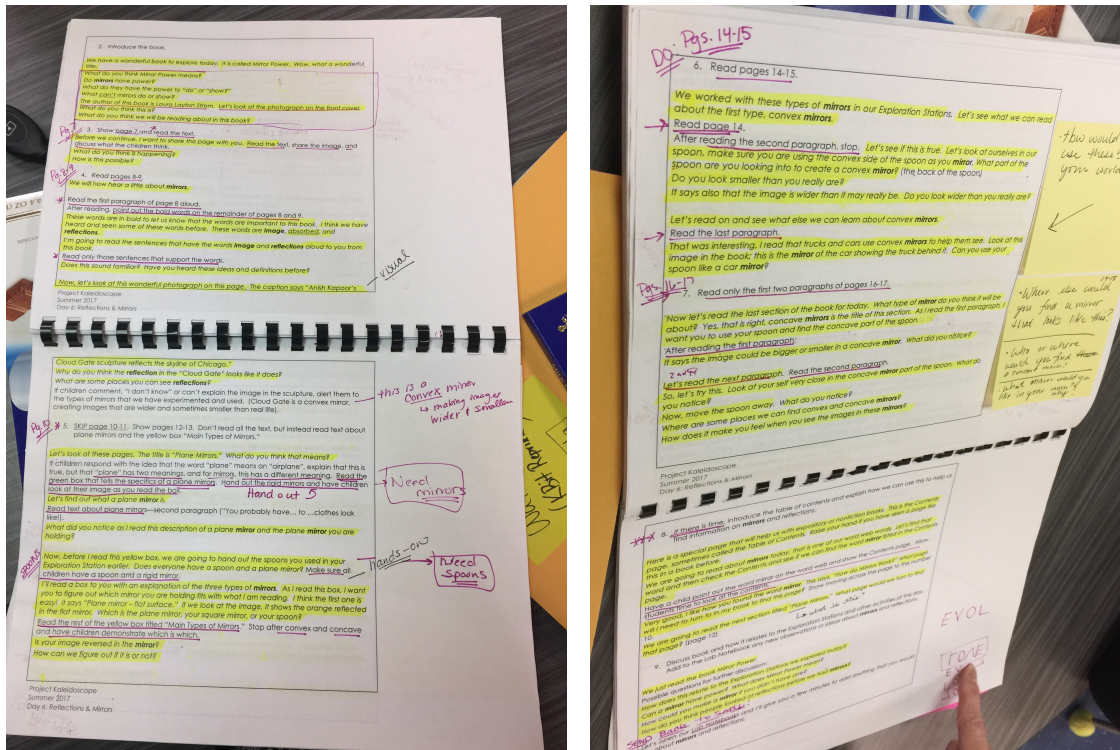 2. Introduce the book.
We have a wonderful book to explore today. It is called Mirror Power. Wow, what a wonderful
title!
What do you think Mirror Power means?
Do mirrors have power?
What do they have the power to "do" or "show?"
What can't mirrors do or show?
The author of this book is Laura Layton Strom. Let's look at the photograph on the front cover.
What do you think this is?
What do you think we will be reading about in this book?
3. Show page 7 and read the text.
Before we continue, I want to share this page with you. Read the text, share the image, and
discuss what the children think.
What do you think is happening?
How is this possible?
Pg. 8-9
4. Read pages 8-9.
We will now hear a little about mirrors.
* Read the first paragraph of page 8 aloud.
After reading, point out the bold words on the remainder of pages 8 and 9.
These words are in bold to let us know that the words are important to the book. I think we have
heard and seen some of these words before. These words are image, absorbed, and
reflections.
I'm going to read the sentences that have the words image and reflections aloud to you from
this book.
* Read only those sentences that support the words.
Does this sound familiar? Have you heard these ideas and definitions before?
visual
Now, let's look at this wonderful photograph on this page. The caption says "Anish Kapoor's
Project Kaleidoscope
Summer 2017
Day 6: Reflections & Mirrors
Cloud Gate sculpture reflects the skyline of Chicago."
Why do you think the reflection in the "Cloud Gate" looks like it does?
What are some places you can see reflections?
If children comment, "I don't know" or can't explain the image in the sculpture, alert them to
the types of mirrors that we have experimented and used. (Cloud Gate is a convex mirror,
creating images that are wider and sometimes smaller than real life).
this is a
convex mirror
↳ making images
wider & smaller
Pg. 10
* 5. SKIP page 10-11. Show pages 12-13. Don't read all the text, but instead read text about
plane mirrors and the yellow box "Main Types of Mirrors."
Let's look at these pages. The title is "Plane Mirrors." What do you think that means?
If children respond with the idea that the word "plane" means an "airplane", explain that this is
true, but that "plane" has two meanings, and for mirrors, this has a different meaning. Read the
green box that tells the specifics of a plane mirrors. Hand out the rigid mirrors and have children
look at their image as you read the box.
Hand out 5
Need
mirrors
Let's find out what a plane mirror is.
Read text about plane mirrors—second paragraph ("You probably have... to ...clothes look
like!).
What did you notice as I read this description of a plane mirror and the plane mirror you are
holding?
spoons
Now, before I read this yellow box, we are going to hand out the spoons you used in your
Exploration Station earlier. Does everyone have a spoon and a plane mirror? Make sure all
children have a spoon and a rigid mirror.
hands-on
Need
spoons
I'll read a box to you with an explanation of the three types of mirrors. As I read this box, I want
you to figure out which mirror you are holding fits with what I am reading. I think the first one is
easy! It says "Plane mirror – flat surface." If we look at the image, it shows the orange reflected
in the flat mirror. Which is the plane mirror, your square mirror, or your spoon?
Read the rest of the yellow box titled "Main Types of Mirrors." Stop after convex and concave
and have children demonstrate which is which.
Is your image reversed in the mirror?
How can we figure out if it is or not?
Project Kaleidoscope
Summer 2017
Day 6: Reflections & Mirrors
DO Pgs. 14-15
6. Read pages 14-15.
We worked with these types of mirrors in our Exploration Stations. Let's see what we can read
about the first type, convex mirrors.
→ Read page 14.
After reading the second paragraph, stop. Let's see if this is true. Let's look at ourselves in our
spoon, make sure you are using the convex side of the spoon as you mirror. What part of the
spoon are you looking into to create a convex mirror? (the back of the spoon)
Do you look smaller than you really are?
It says also that the image is wider than it may really be. Do you look wider than you really are?
Let's read on and see what else we can learn about convex mirrors.
→ Read the last paragraph.
That was interesting, I read that trucks and cars use convex mirrors to help them see. Look at this
image in the book; this is the mirror of the car showing the truck behind it. Can you use your
spoon like a car mirror?
Pgs. 16-17
7. Read only the first two paragraphs of pages 16-17.
Now let's read the last section of the book for today. What type of mirror do you think it will be
about? Yes, that is right, concave mirrors is the title of this section. As I read the first paragraph, I
want you to use your spoon and find the concave part of the spoon.
After reading the first paragraph:
It says the image could be bigger or smaller in a concave mirror. What did you notice?
2nd ¶
Let's read the next paragraph. Read the second paragraph.
So, let's try this. Look at your self very close in the concave mirror part of the spoon. What do
you notice?
Now, move the spoon away. What do you notice?
Where are some places we can find convex and concave mirrors?
How does it make you feel when you see the images in these mirrors?
• How would
use these
your would
14-15
• Where else would
you find a mirror
that looks like this?
• Who or where
would you find
a convex mirror?
What mirror would you
like in your room &
why?
Project Kaleidoscope
Summer 2017
Day 6: Reflections & Mirrors
8. If there is time, introduce the table of contents and explain how we can use this to help us
find information on mirrors and reflections.
Here is a special page that will help us with expository or nonfiction books. This is the Contents
page, sometimes called the Table of Contents. Raise your hand if you have seen a page like
this in a book before.
We are going to read about mirrors today, that is one of our word webs. Let's find that
word and then check the Contents and see if we can find the word mirror listed in the Contents
page.
Have a child point out the word mirror on the word web and show the Contents page. Allow
students time to look at the contents.
Very good, I like how you found the word mirror. This says "How do Mirrors Work" what page
will I need to turn to in my book to find this page? Show moving across the page to the number
10.
We are going to read the next section titled "Plane Mirrors." What page would we turn to find
that page? (page 12)
9. Discuss book and how it relates to the Exploration Stations and other activities of the day.
Add to the Lab Notebook any new observations or ideas about mirrors and reflections.
We just read the book Mirror Power.
Possible questions for further discussion:
How does this relate to the Exploration Stations we explored today?
Can a mirror have power? What does Mirror Power mean?
How could you make a mirror if you don't have one?
How do you think people looked at reflections before we had mirrors?
SEND Back to Seats:
Let's open our Lab Notebooks and I'll give you a few minutes to add anything that you would
about mirrors and reflections.
EVOL